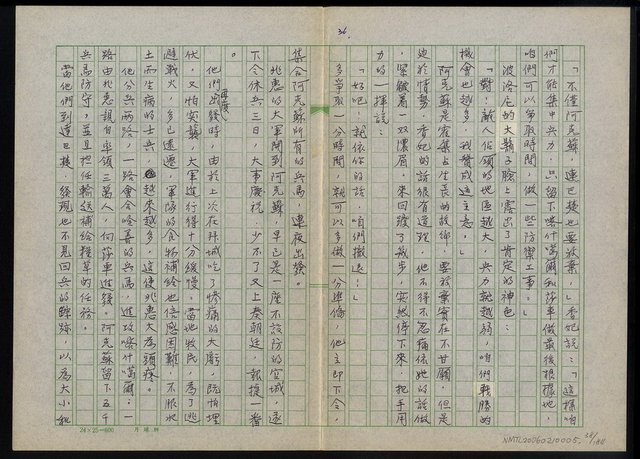 36.
「不僅阿克蘇,連巴楚也要放棄。」香妃說:「這樣咱
們才能集中兵力,只留下喀什噶爾和莎車做最後根據地,
咱們可以爭取時間,做一些防禦工事。」
波洛尼的大鬍子臉上露出了肯定的神色:
「對!敵人佔領的地區越大,兵力就越弱,咱們戰勝的
機會也越多,我贊成這主意。」
阿克蘇是霍集占生長的故鄉,要放棄實在不甘願,但是
處於情勢,香妃的話很有道理,他不得不忍痛依她的話做
,緊皺着一双濃眉,來回踱了幾步,突然停下來,把手用
力的一揮說:
「好吧!就依你的話,咱們撤退!」
多爭取一分時間,就可以多做一分準備,他立即下令,
集合阿克蘇所有的兵馬,連夜出發。
兆惠的大軍開到阿克蘇,早已是一座不設防的空城,遂
下令休兵三日,大事慶祝,少不了又上奏朝廷,報捷一番
。
他們再度出發時,由於上次在拜城吃了慘痛的大虧,既怕埋
伏,又怕突襲,大軍進行得十分緩慢。當地牧民,為了逃
避戰火,多已遠遷,軍隊的食物補給也倍感困難,不服水
土而生病的士兵,越來越多,這使兆惠大為頭疼。
他分兵兩路,一路會合哈善的兵馬,進攻喀什噶爾;一
路由兆惠親自率領三萬人,向莎車進發。阿克蘇留下五千
兵馬防守,並且担任輸送補給糧草的任務。
當他們到達巴楚,發現也不見回兵的踪跡,以為大小和
24×25=600
NMTL20060210005